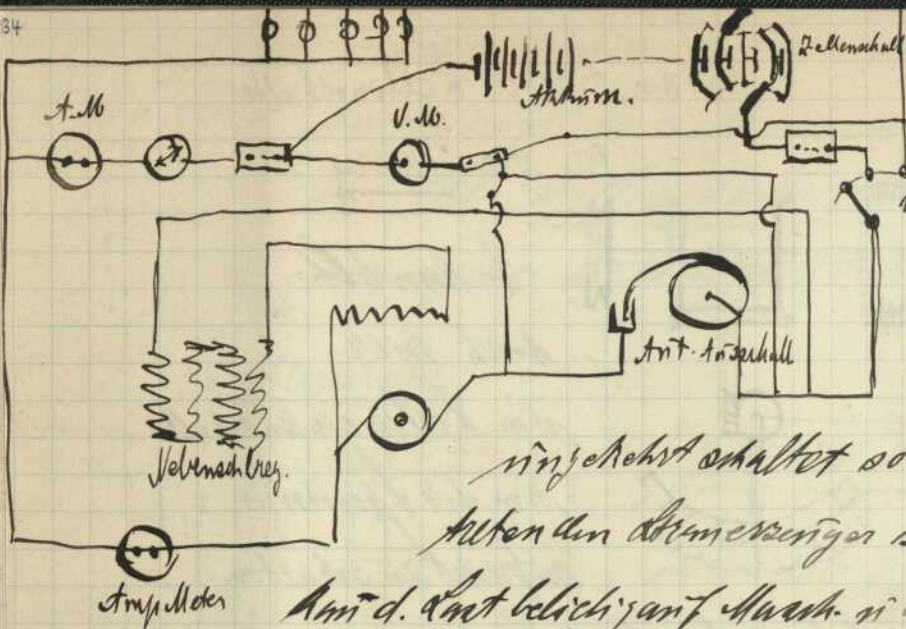 34
A.M
V.M.
Akkum.
Zellenschalt
Aut. Ausschalt
Nebenschlreg.
Amp Meter
umgekehrt schaltet so
treten den Stromerzeuger
kann d. Last beliebig auf Masch. u